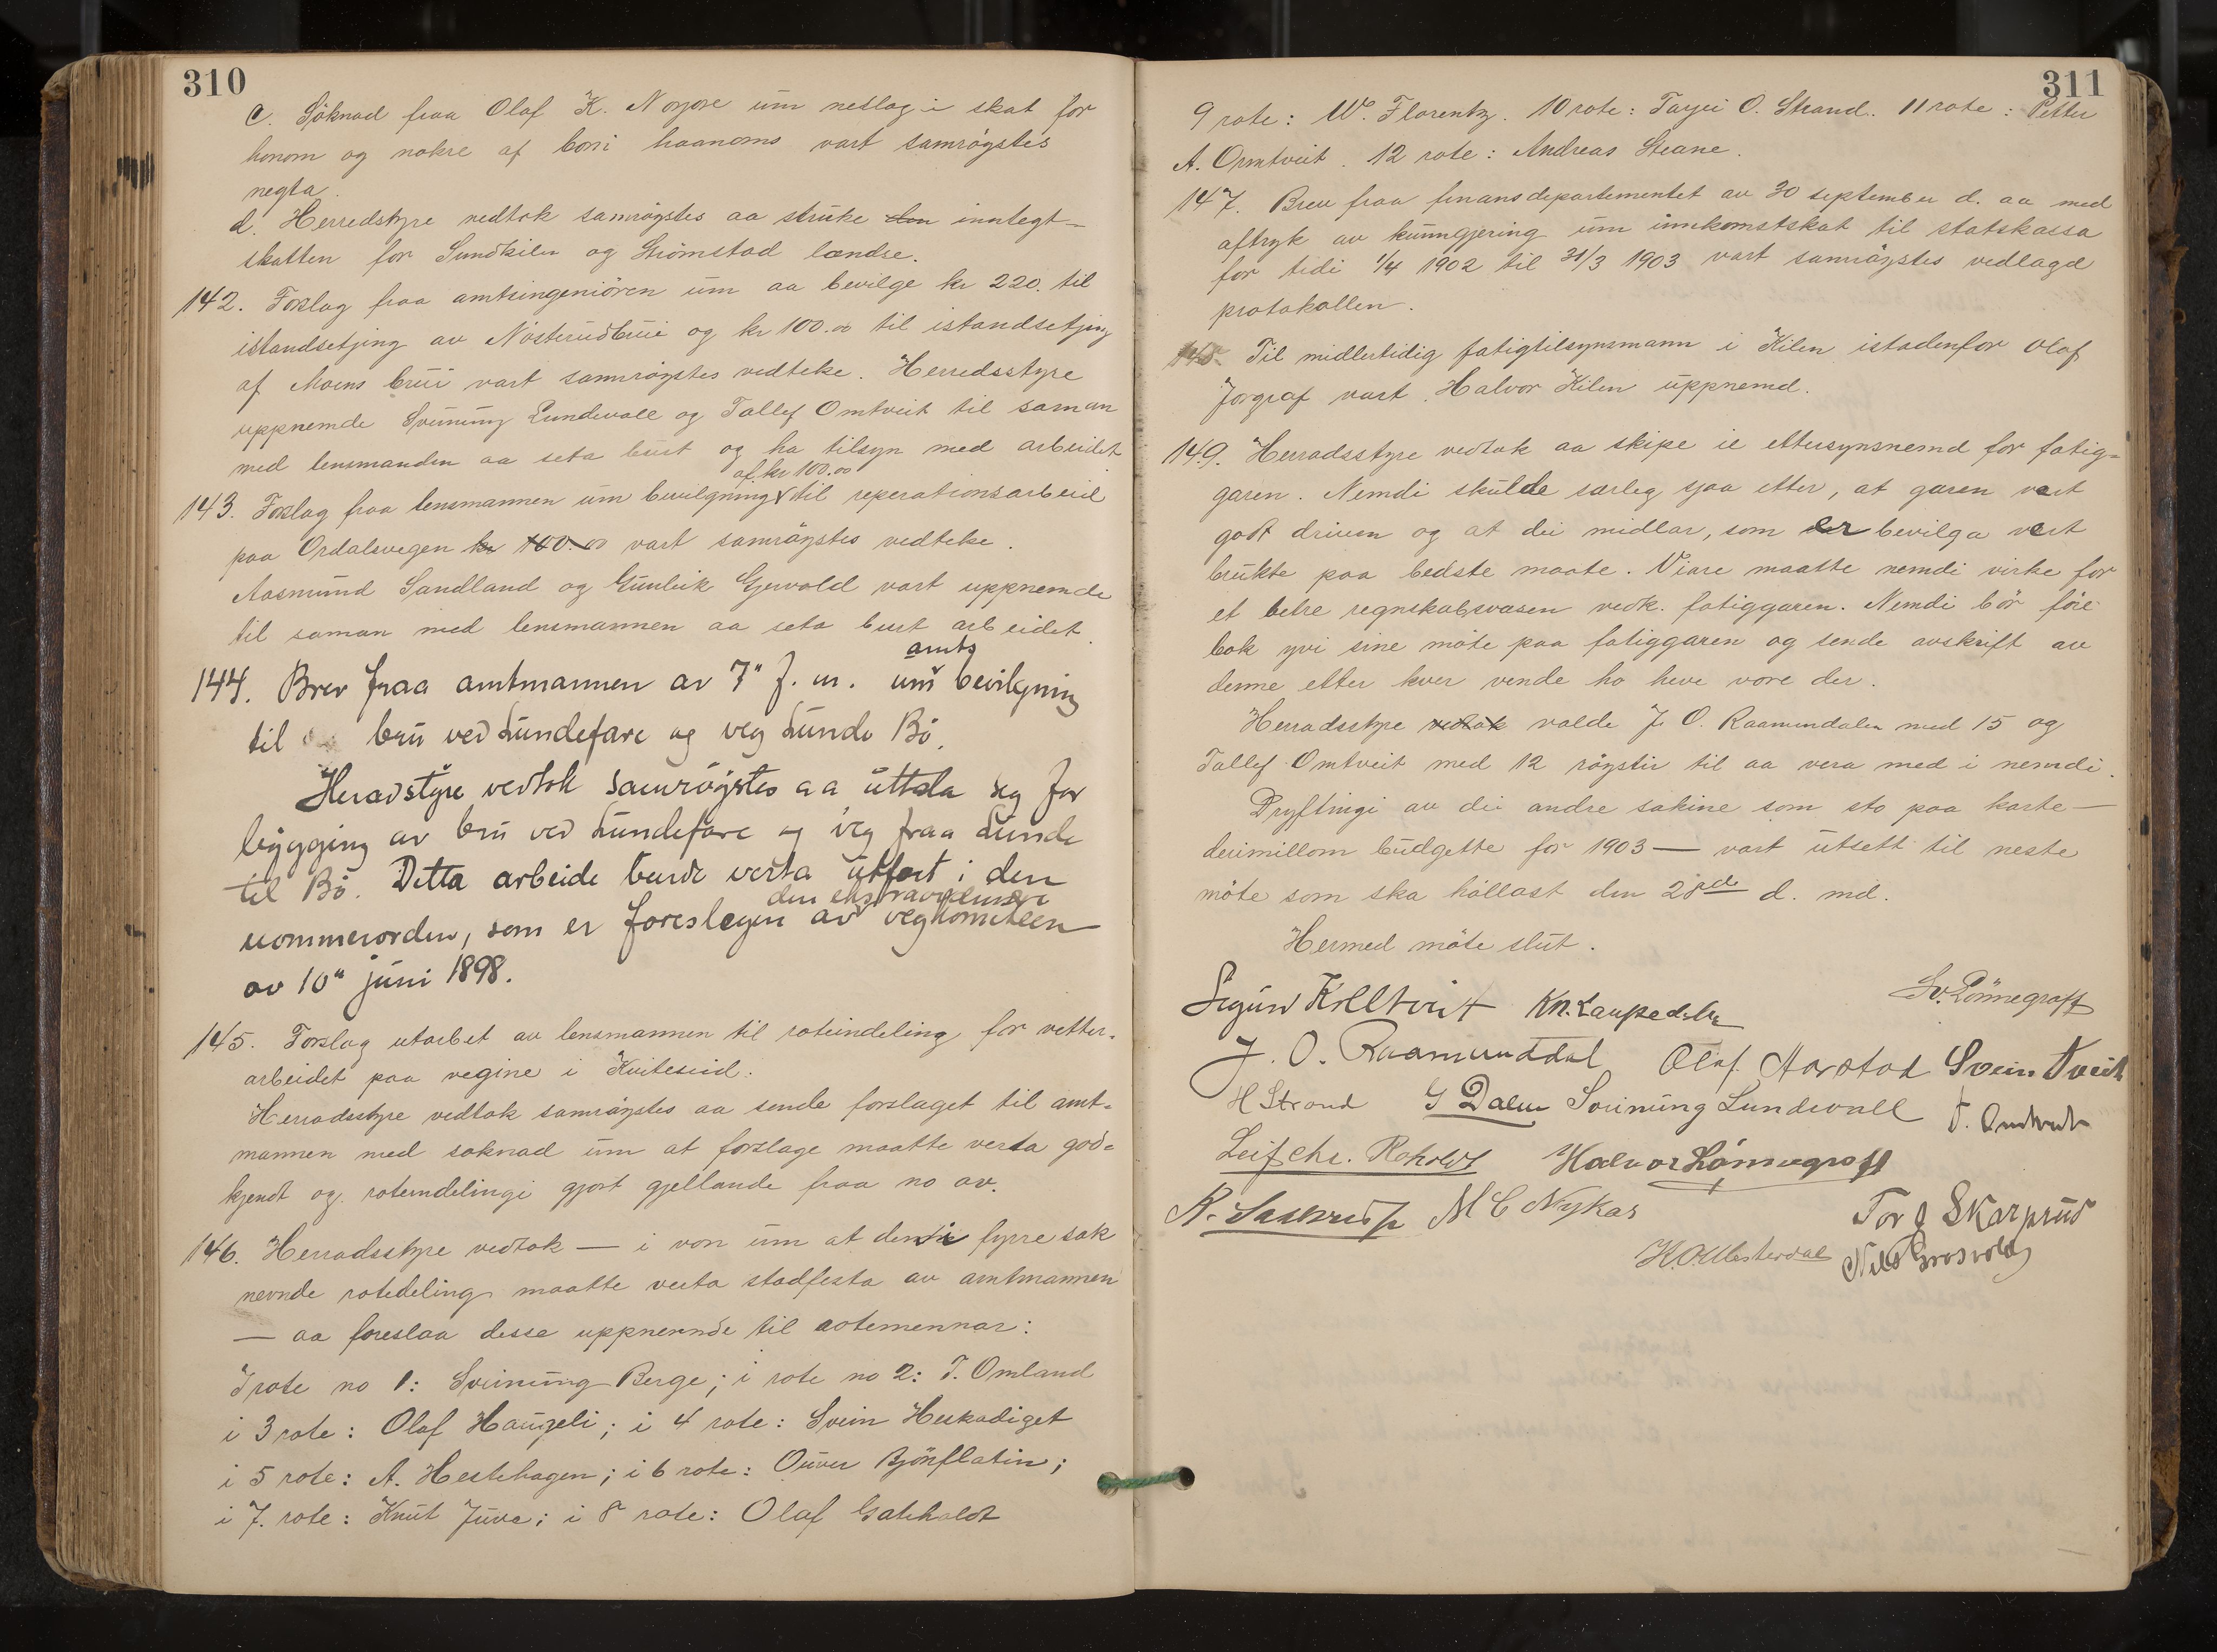 310
c. Söknad fraa Olaf K. Norjore um neslag i skat for
honom og nokre af boni haanoms vart samröystes
negta.
d. Herredstyre vedtok samröystes aa struke den inntegt-
skatten for Sundkilen og Strömstad lændse.
142. Forslag fraa amtsingeniören um aa bevilge kr 220. til
istandsetjing av Nösterudbrui og kr 100.00 til istandsetjing
af Moens brui vart samröystes vedteke. Herredsstyre
uppnemde Sveinung Lundevall og Tallef Omtveit til saman
med lensmanden aa seta burt og ha tilsyn med arbeidet
af kr 100.00
143. Forslag fraa lensmannen um bevilgning til reperationsarbeid
paa Ordalsvegen kr 100.00 vart samröystes vedteke.
Aasmund Sandland og Gunleik Gjervold vart uppnemde
til saman med lensmannen aa seta burt arbeidet.
amts
144. Brev fraa amtmannen av 7" f. m. um bevilgning
til bru ved Lundefare og veg Lunde Bö.
Heradstyre vedtok samröystes aa uttala seg for
bygging av bru ved Lundefare og veg fraa Lunde
til Bö. Detta arbeide burde verta utfört i den
den ekstraordinære
nommerorden, som er foreslegen av vegkomiteen
av 10" juni 1898.
145. Forslag utarbet av lensmannen til roteindeling for vetter-
arbeidet paa vegine i Kviteseid.
Herradsstyre vedtok samröystes aa sende forslaget til amt-
mannen med soknad um at forslage maatte verta god-
kjendt og roteindelingi gjort gjellande fraa no av.
146. Herradsstyre vedtok — i von um at den i fyrre sak
nevnde rotedeling maatte verta stadfesta av amtmannen
— aa foreslaa desse uppnemnde til rotemennar:
I rote no 1: Sveinung Berge; i rote no 2: T. Omland
i 3 rote: Olaf Haugeli; i 4 rote: Svein Heskadiget
i 5 rote: A. Hestehagen; i 6 rote: Ouver Björnflatin;
i 7. rote: Knut Juve; i 8 rote: Olaf Gateholdt
311
9 rote: W. Florentz. 10 rote: Tarjei O. Strand. 11 rote: Petter
A. Omtveit. 12 rote: Andreas Steane.
147. Brev fraa finansdepartementet av 30 september d. aa med
aftryk av kunngjering um innkomstskat til statskassa
for tidi 1/4 1902 til 31/3 1903 vart samröystes vedlagd
protokollen.
148. Til midlertidig fatigtilsynsmann i Kilen istadenfor Olaf
Jorgraf vart Halvor Kilen uppnemd.
149. Herradsstyre vedtok aa skipe ie ettersynsnemd for fatig-
garen. Nemdi skulde særleg sjaa etter, at garen vert
godt driven og at dei midlar, som er bevilga vert
brukte paa bedste maate. Viare maatte nemdi virke for
et betre regnskabsvæsen vedk. fatiggaren. Nemdi bör före
bok yvi sine möte paa fatiggaren og sende avskrift av
denne etter kver vende ho heve vore der.
Herradsstyre vedtok valde J. O. Raamundalen med 15 og
Tallef Omtveit med 12 röystir til aa vera med i nemdi.
Dryftingi av dei andre sakine som sto paa karte —
derimillom budgette for 1903 — vart utsett til neste
möte som ska hallast den 28de d. md.
Hermed möte slut.
Sigurd Kvilltveit Kn. Laupedalen Sv. Lönnegraff
J. O. Raamunddal Olaf Aarstad Svein Tveit
H Strand G Dalen Sveinung Lundevall T. Omtveit
Leif Chr. Roholdt Halvor Lönnegraff
M C Nykas Tor G Skarprud
K. O. Vesterdal Nils Grosvold